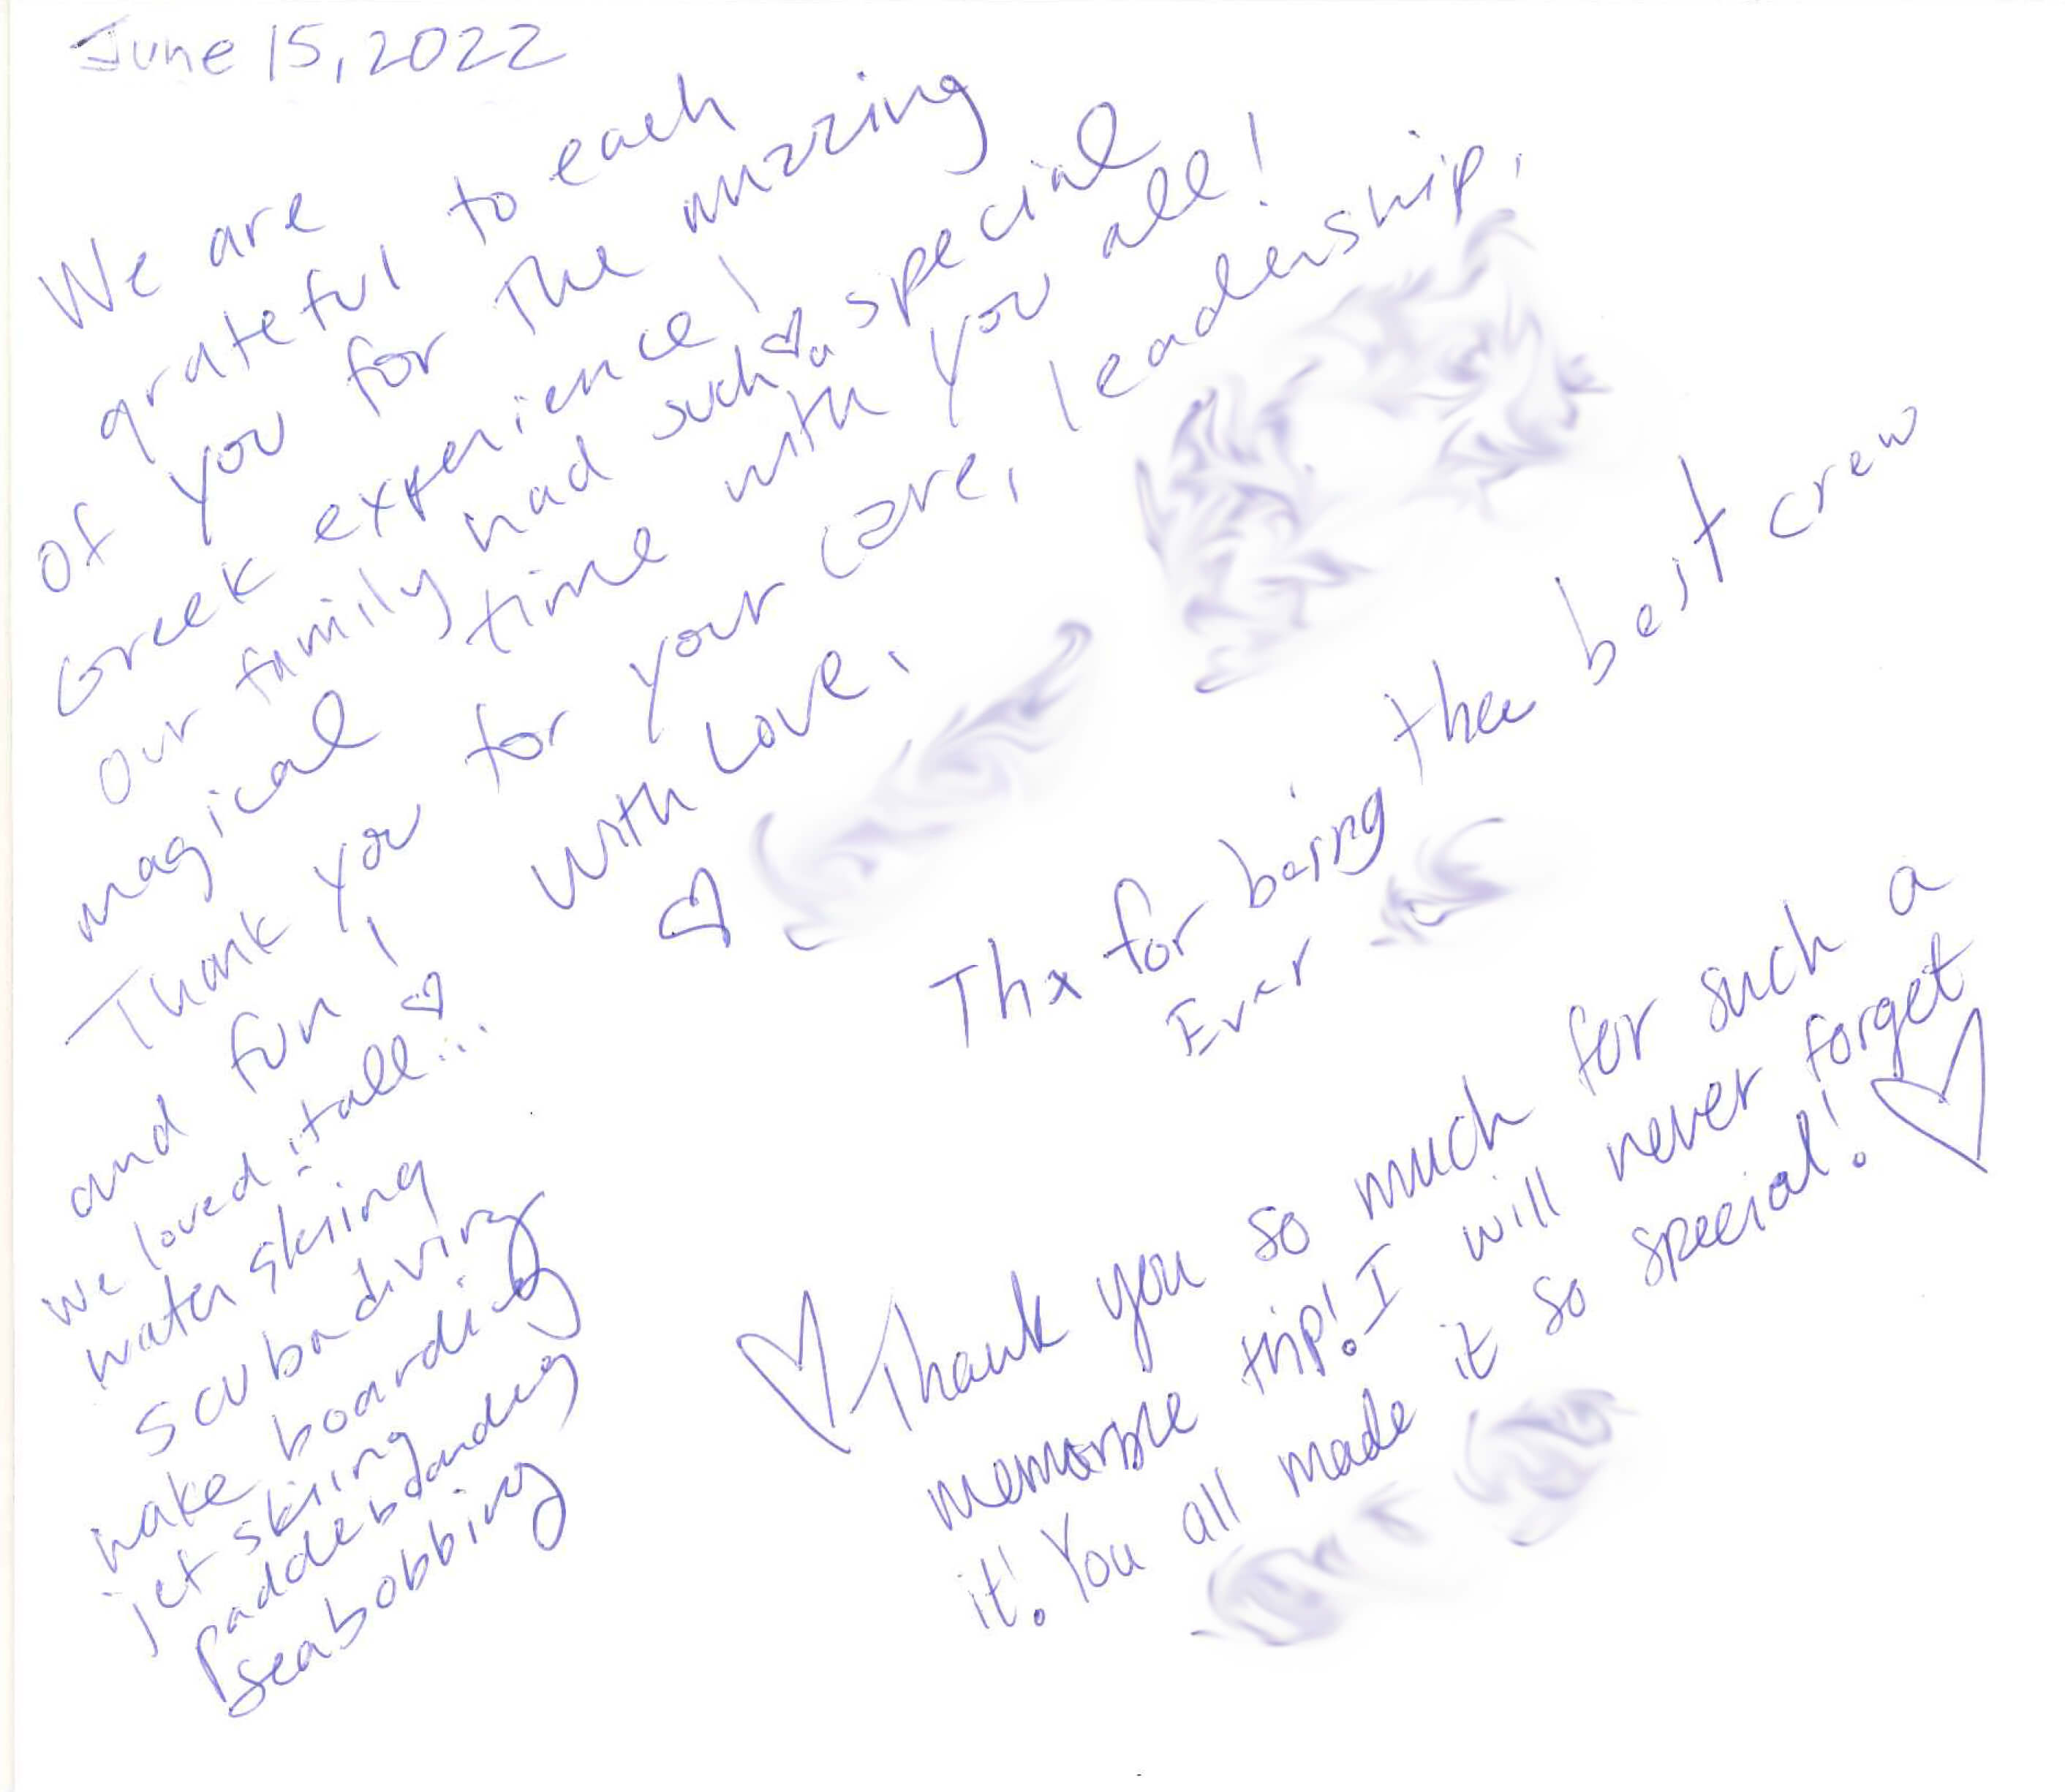 June 15, 2022
We are
grateful to each
of you for the amazing
Greek experience!
our family had such a special
magical time with you all!
Thank you for your care, leadership,
and fun!
with Love,
we loved it all...
water skiing
scuba diving
wake boarding
jet skiing
paddeboarding
seabobbing
Thx for being thee best crew
Ever
Thank you so much for such a
memorable trip! I will never forget
it! You all made it so special!